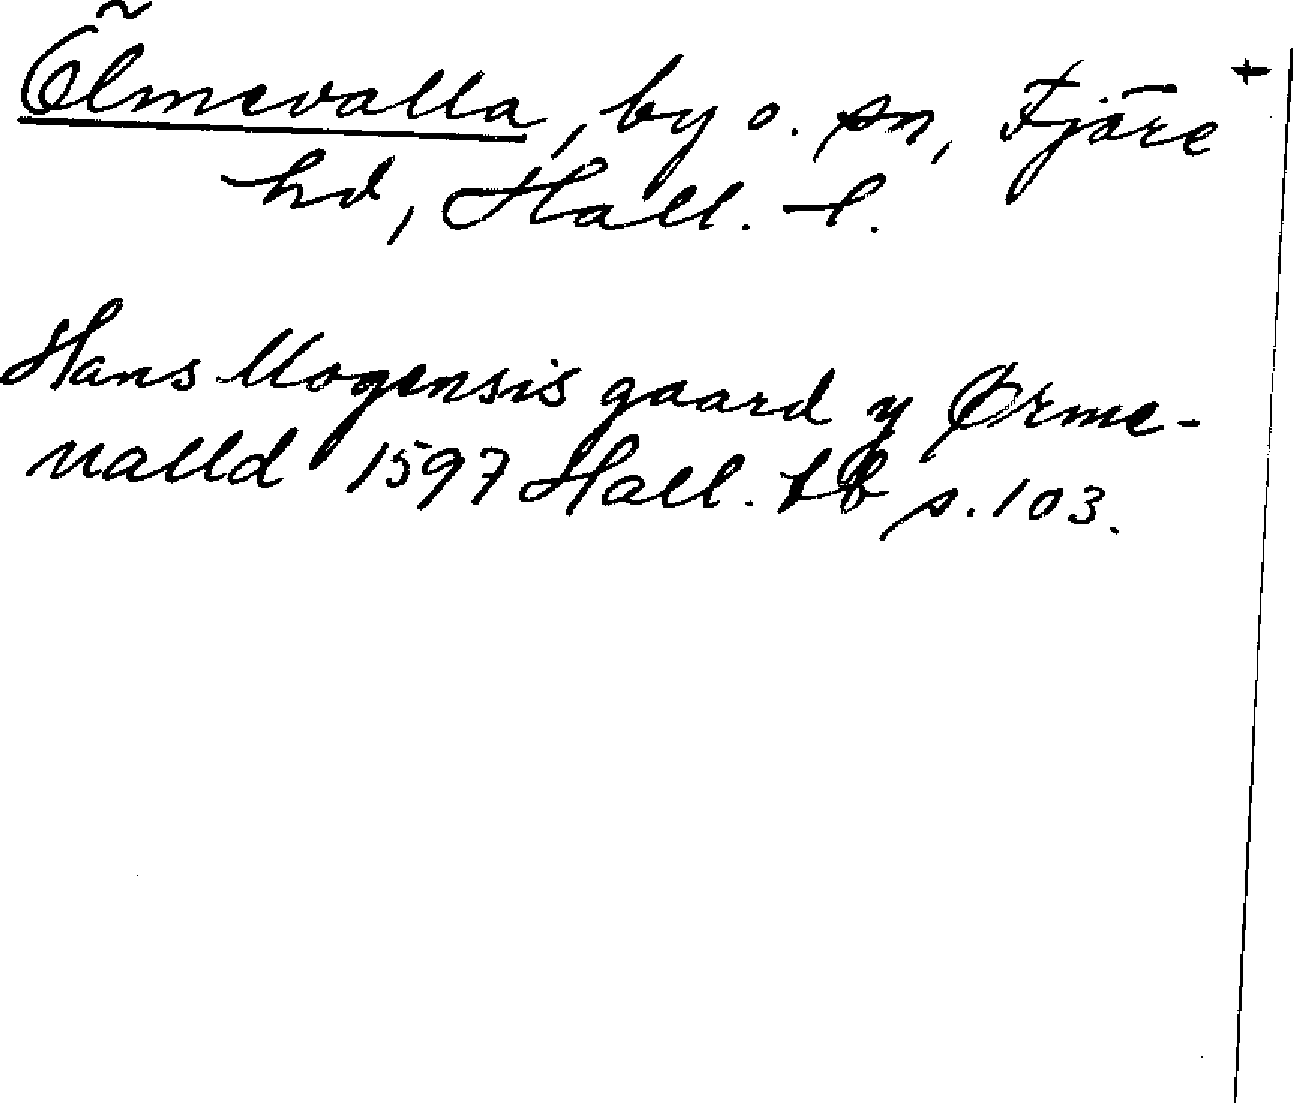 Ölmevalla, by o. sn, Fjäre +
hd, Hall. l.
Hans Mogensis gaard y Ørme-
valld 1597 Hall. lb s. 103.